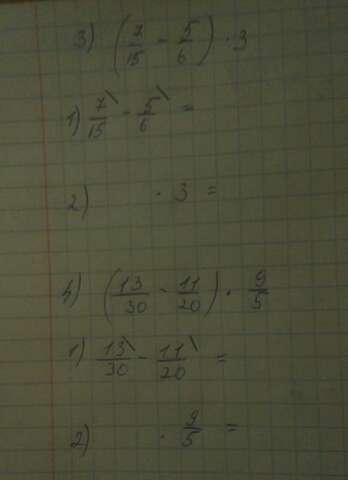 3) (7/15 - 5/6) · 3
1) 7/15 - 5/6 =
2) · 3 =
4) (13/30 - 11/20) · 9/5
1) 13/30 - 11/20 =
2) · 9/5 =